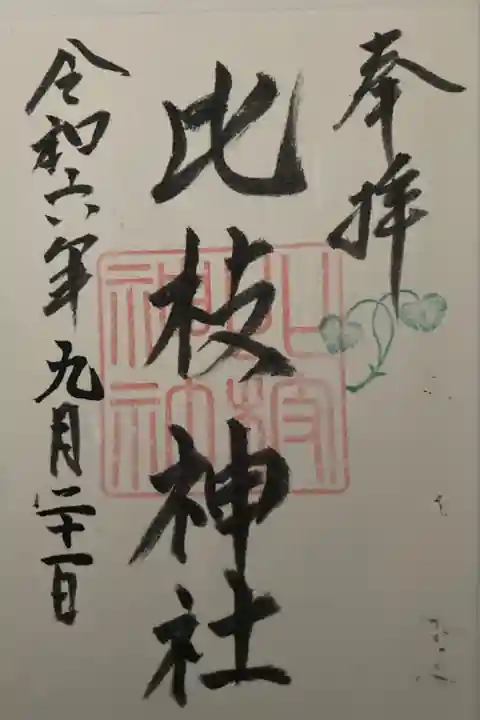 奉拝
比枝神社
令和六年九月二十一日
比枝神社